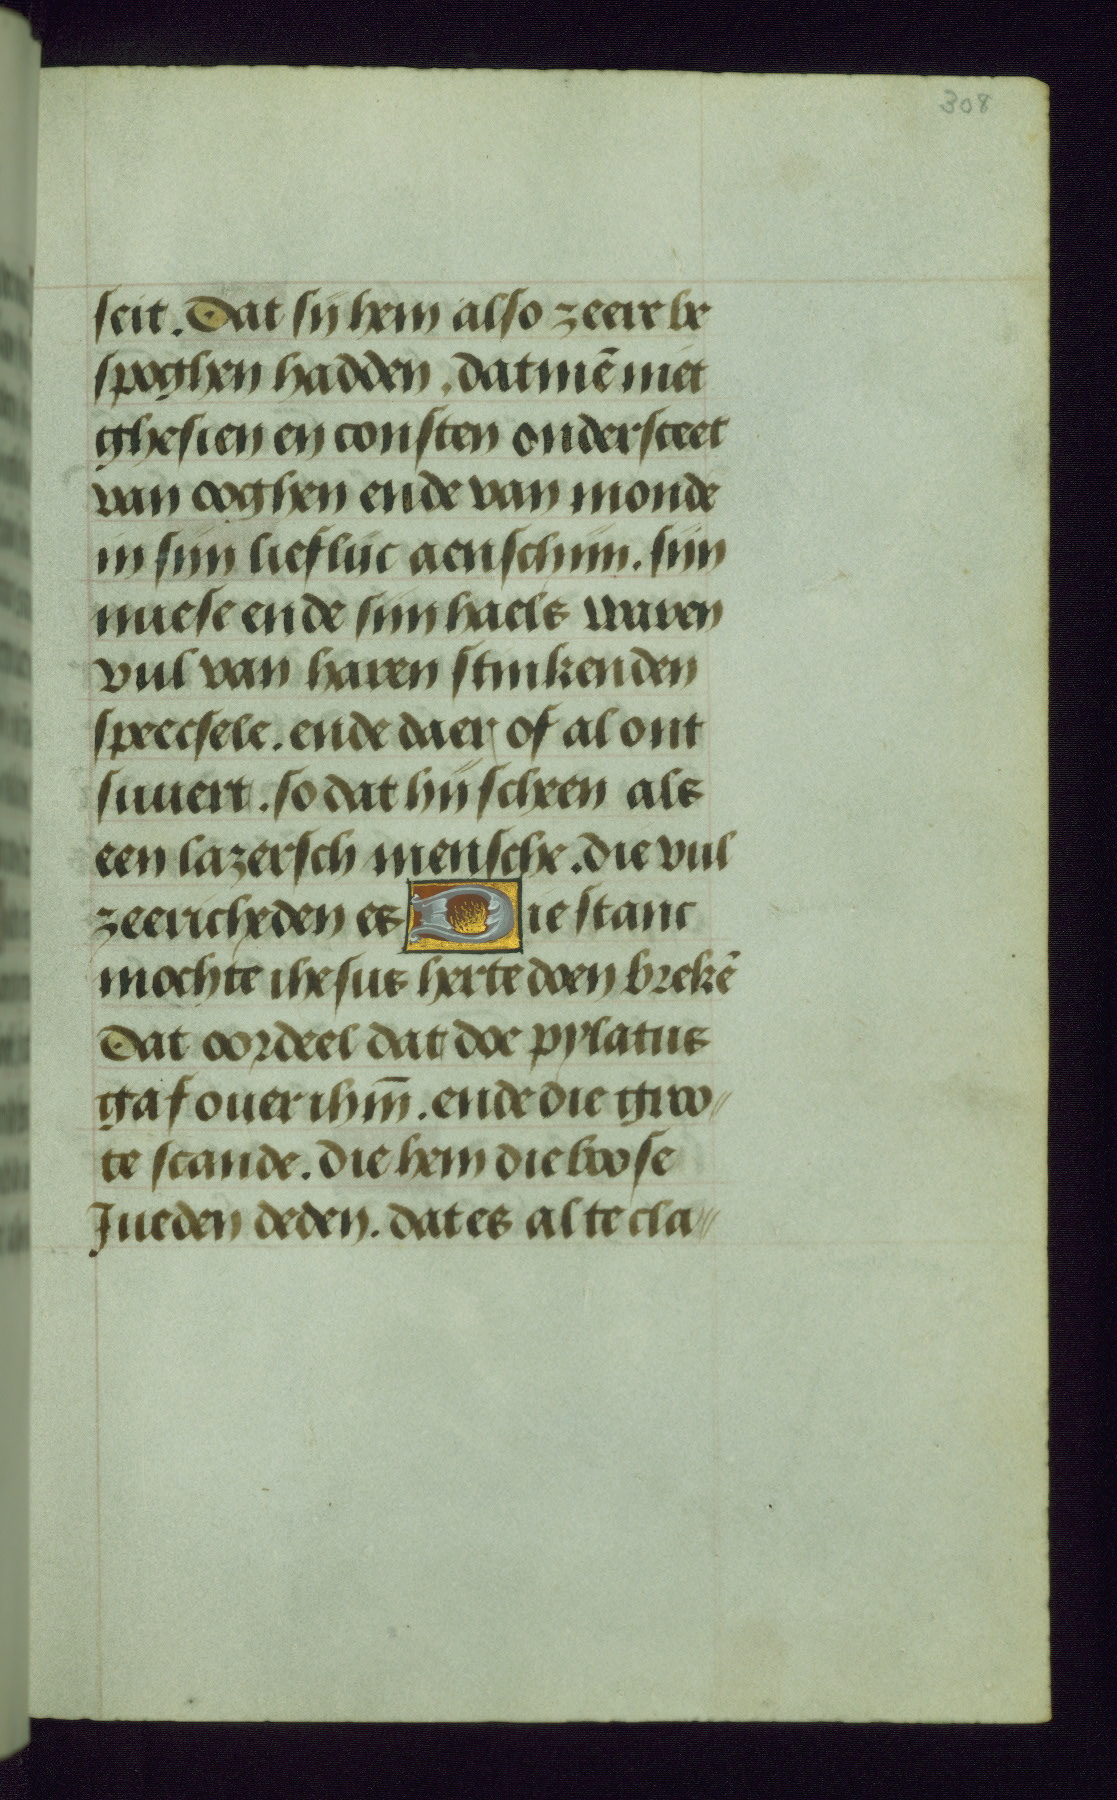 308
seit. Dat sij hem also zeere be
spoghen hadden. datmē niet
ghesien en consten ondersceet
van ooghen ende van monde
in sijn lieflijc aenschijn. sijn
nuese ende sijn haels waren
vul van haren stinkenden
speecsele. ende daer of al ont
suuert. so dat hij scheen als
een lazersch mensche. die vul
zeericheden es Die stanc
mochte ihesus herte doen brekē
Dat oordeel dat doe pylatus
gaf ouer ihm̄. ende die groo〃
te scande. die hem die boose
Jueden deden. dat es al te cla〃